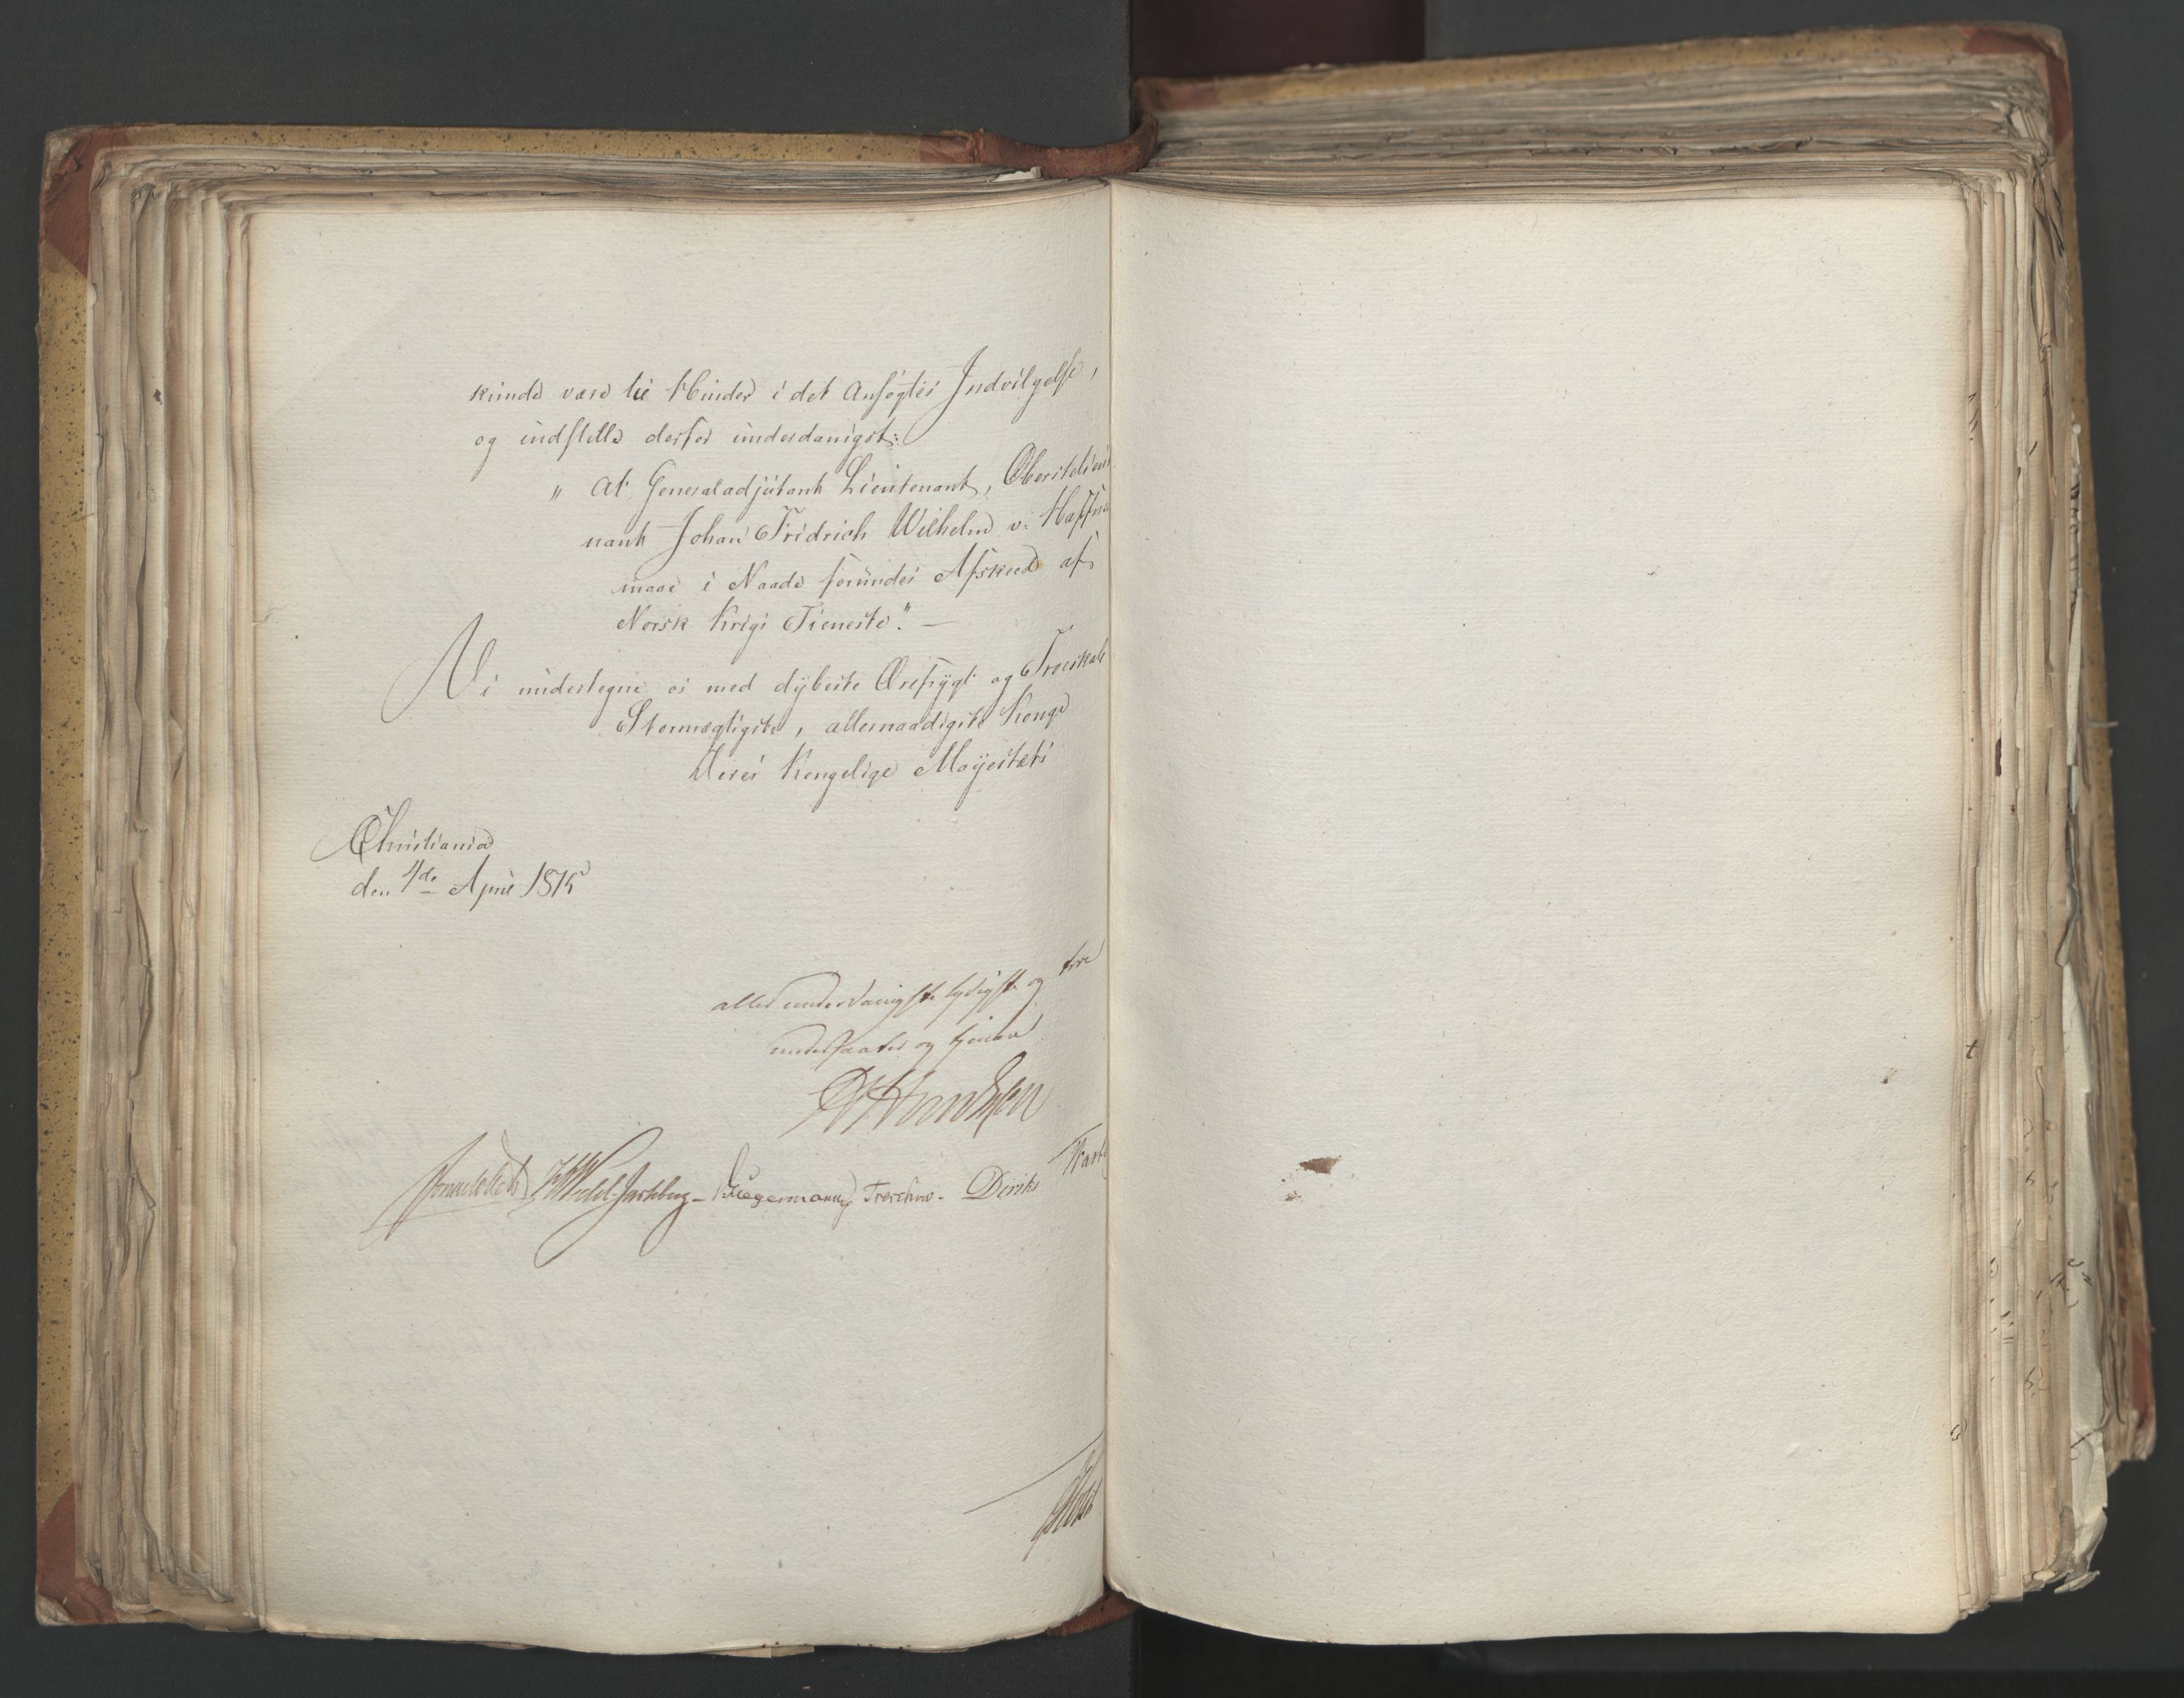 kunde være til Hinder i det Ansøgtes Indvilgelse,
og indstille derfor underdanigst:
" At Generaladjutant Lieutenant, Oberstelieut
nant Johan Fridrich Wilhelm v. Haffne
maae i Naade forundes Afskeed af
Norsk Krigs Tieneste". —
Vi undertegne os med dybeste Ærefrygt og Troeskab
Stormægtigste, allernaadigste Konge
Deres Kongelige Mayestæts
Christiania
den 4de April 1815
allerunderdanigste lydigste og troe
undersaatter og tjenere
Hendssen
Sommerhielm HWedel-Jarlsberg - DHegermann Treschow - Diriks
Holst